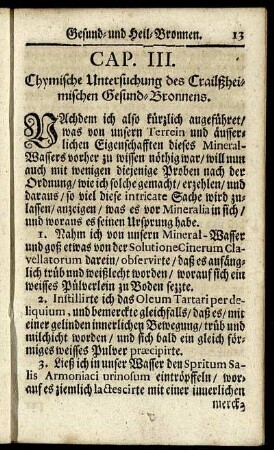 Gesund- und Heil-Bronnen. 13
CAP. III.
Chymische Untersuchung des Crailßhei-
mischen Gesund-Bronnens.
NAchdem ich also kürzlich angeführet/
was von unsern Terrein und äusser-
lichen Eigenschafften dieses Mineral-
Wassers vorher zu wissen nöthig war/ will nun
auch mit wenigen diejenige Proben nach der
Ordnung/ wie ich solche gemacht/ erzehlen/ und
daraus/ so viel diese intricate Sache wird zu-
lassen/ anzeigen/ was es vor Mineralia in sich/
und woraus es seinen Ursprung habe.
1. Nahm ich von unsern Mineral-Wasser
und goß etwas von der Solutione Cinerum Cla-
vellatorum darein/ observirte/ daß es anfäng-
lich trüb und weißlecht worden/ worauf sich ein
weisses Pülverlein zu Boden sezte.
2. Instillirte ich das Oleum Tartari per de-
liquium, und bemerckte gleichfalls/ daß es/ mit
einer gelinden innerlichen Bewegung/ trüb und
milchicht worden/ und sich bald ein gleich för-
miges weisses Pulver præcipirte.
3. Ließ ich in unser Wasser den Spritum Sa-
lis Armoniaci urinosum eintröpffeln/ wor-
auf es ziemlich lactescirte mit einer innerlichen
merck-